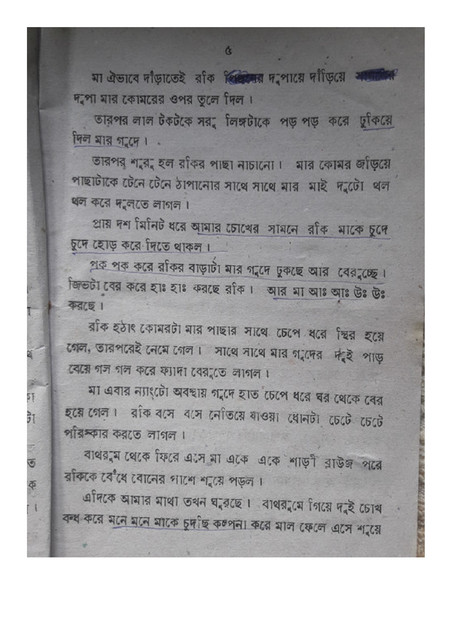 ৫
মা ঐভাবে দাঁড়াতেই রকি দুপায়ে দাঁড়িয়ে
দুপা মার কোমরের ওপর তুলে দিল ।
তারপর লাল টকটকে সরু লিঙ্গটাকে পড় পড় করে ঢুকিয়ে
দিল মার গুদে ।
তারপর শুরু হল রকির পাছা নাচানো । মার কোমর জড়িয়ে
পাছাটাকে টেনে টেনে ঠাপানোর সাথে সাথে মার মাই দুটো থল
থল করে দুলতে লাগল ।
প্রায় দশ মিনিট ধরে আমার চোখের সামনে রকি মাকে চুদে
চুদে হোড় করে দিতে থাকল ।
পক পক করে রকির বাড়াটা মার গুদে ঢুকছে আর বেরুচ্ছে ।
জিভটা বের করে হাঃ হাঃ করছে রকি । আর মা আঃ আঃ উঃ উঃ
করছে ।
রকি হঠাৎ কোমরটা মার পাছার সাথে চেপে ধরে স্থির হয়ে
গেল, তারপরেই নেমে গেল । সাথে সাথে মার গুদের দুই পাড়
বেয়ে গল গল করে ফ্যাদা বেরুতে লাগল ।
মা এবার ন্যাংটো অবস্থায় গুদে হাত চেপে ধরে ঘর থেকে বের
হয়ে গেল । রকি বসে বসে নেতিয়ে যাওয়া ধোনটা চেটে চেটে
পরিস্কার করতে লাগল ।
বাথরুম থেকে ফিরে এসে মা একে একে শাড়ী ব্লাউজ পরে
রকিকে বেঁধে বোনের পাশে শুয়ে পড়ল ।
এদিকে আমার মাথা তখন ঘুরছে । বাথরুমে গিয়ে দুই চোখ
বন্ধ করে মনে মনে মাকে চুদছি কল্পনা করে মাল ফেলে এসে শুয়ে